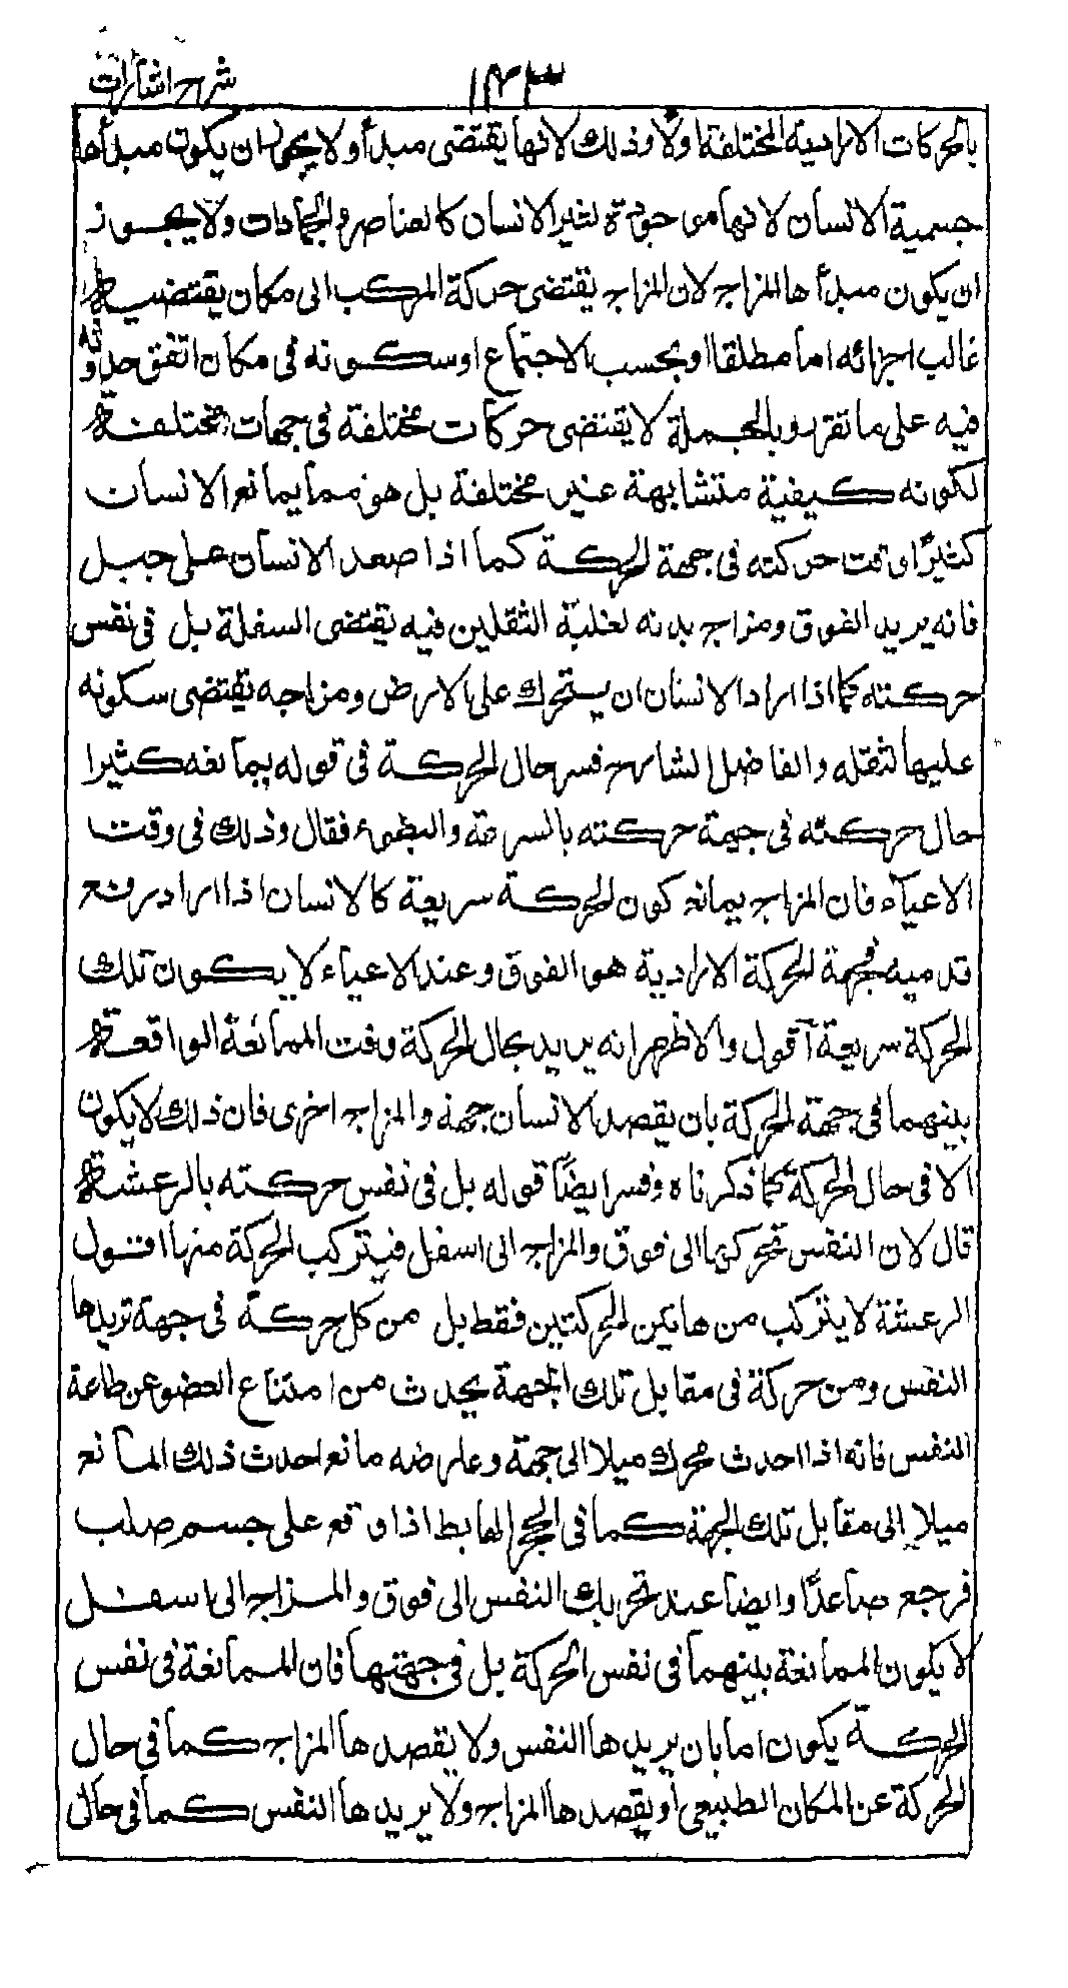 شرح اشارات
١٤٣
بالحركات الارادية المختلفة اولًا وذلك لانها يقتضى مبدأ ولا يجوز ان يكون مبدأها
جسمية الانسان لانها موجودة لغير الانسان كالعناصر والجمادات ولا يجوز
ان يكون مبدأها المزاج لان المزاج يقتضى حركة المركب الى مكان يقتضيه
غالب اجزائه اما مطلقا او بحسب الاجتماع او سكونه فى مكان اتفق حدوثه
فيه على ما تقرر وبالجملة لا يقتضى حركات مختلفة فى جهات مختلفة
لكونه كيفية متشابهة غير مختلفة بل هو مما يمانع الانسان
كثيرًا وقت حركته فى جهة الحركة كما اذا صعد الانسان على جبل
فانه يريد الفوق ومزاج بدنه لغلبة الثقلين فيه يقتضى السفلة بل فى نفس
حركته كما اذا اراد الانسان ان يتحرك على الارض ومزاجه يقتضى سكونه
عليها لثقله والفاضل الشارح فسر حال الحركة فى قوله يمانعه كثيرا
حال حركته فى جهة حركته بالسرعة والبطوء فقال وذلك فى وقت
الاعياء فان المزاج يمانع كون الحركة سريعة كالانسان اذا اراد رفع
قدميه فجهة الحركة الارادية هو الفوق وعند الاعياء لا يكون تلك
الحركة سريعة اقول والاظهر انه يريد بحال الحركة وقت الممانعة الواقعة
بينهما فى جهة الحركة بان يقصد الانسان جهة والمزاج اخرى فان ذلك لا يكون
الا فى حال الحركة كما ذكرناه وفسر ايضًا قوله بل فى نفس حركته بالرعشة
قال لان النفس تحركها الى فوق والمزاج الى اسفل فيتركب الحركة منها اقول
الرعشة لا يتركب من هاتين الحركتين فقط بل من كل حركة فى جهة تريدها
النفس ومن حركة فى مقابل تلك الجهة يحدث من امتناع العضو عن طاعة
النفس فانه اذا احدث محرك ميلا الى جهة وعارضه مانع احدث ذلك المانع
ميلا الى مقابل تلك الجهة كما فى الحجر الهابط اذا وقع على جسم صلب
فرجع صاعدًا وايضا عند تحريك النفس الى فوق والمزاج الى اسفل
لا يكون الممانعة بينهما فى نفس الحركة بل فى جهتها فان الممانعة فى نفس
الحركة يكون اما بان يريدها النفس ولا يقصدها المزاج كما فى حال
الحركة عن المكان الطبيعى او يقصدها المزاج ولا يريدها النفس كما فى حال